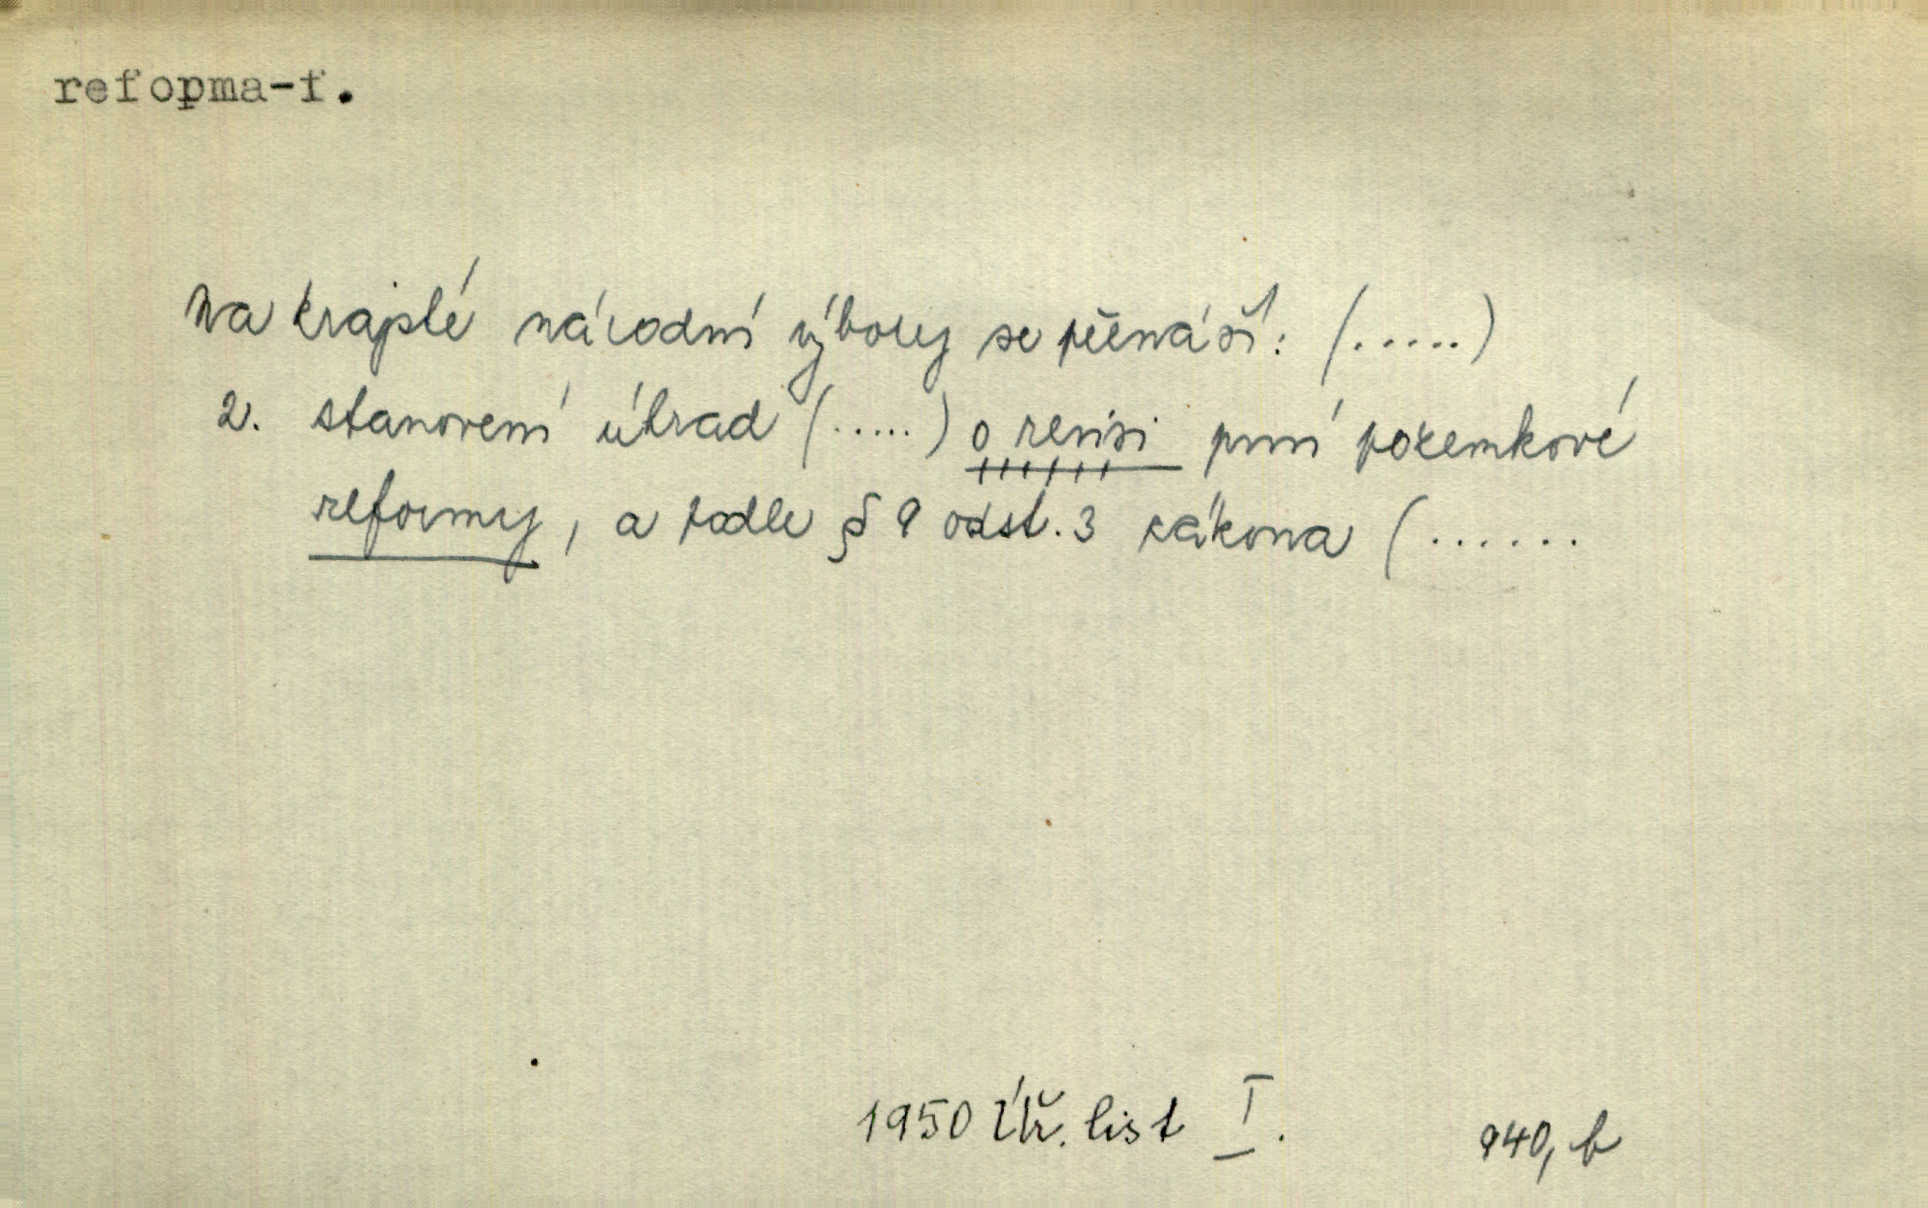 reforma-f.
Na krajské národní výbory se přenáší: (.....)
2. stanovení úhrad (.....) o revisi první pozemkové
reformy, a podle § 9 odst. 3 zákona (......
1950 Úř. list I.
940, b